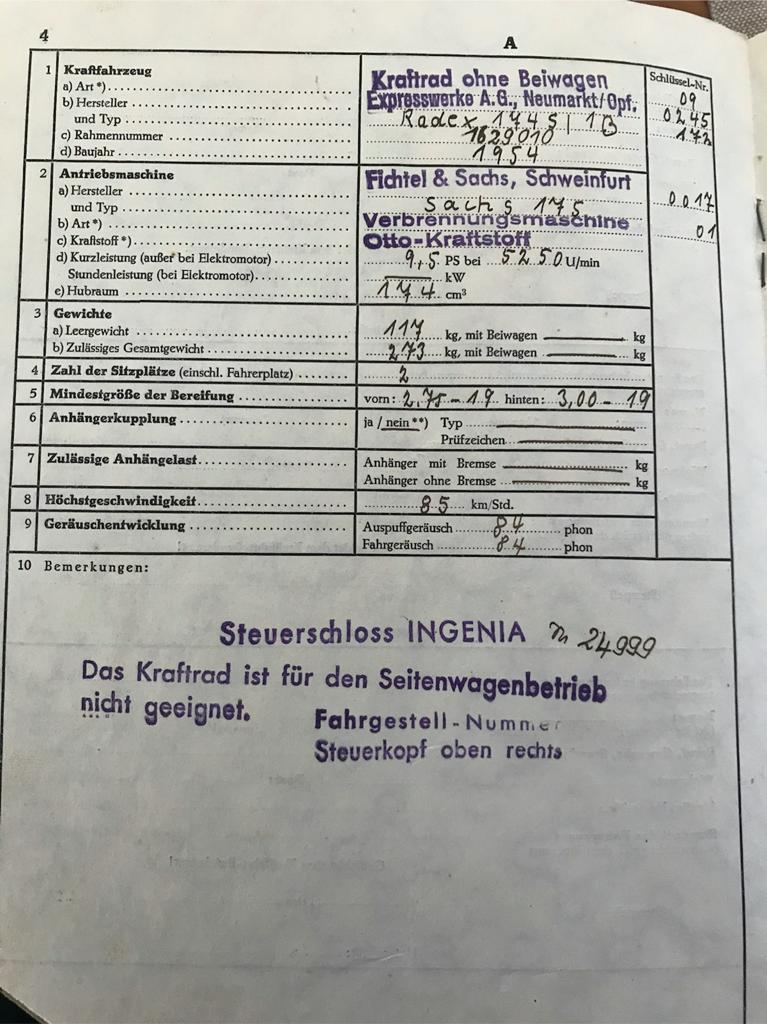 4
A
1 Kraftfahrzeug
Schlüssel-Nr.
a) Art*) Kraftrad ohne Beiwagen 09
b) Hersteller Expresswerke A.G., Neumarkt/Opf. 0245
und Typ Radex 174S/1B 172
c) Rahmennummer 1629010
d) Baujahr 1954
2 Antriebsmaschine
a) Hersteller Fichtel & Sachs, Schweinfurt
und Typ Sachs 175 0017
b) Art*) Verbrennungsmaschine
c) Kraftstoff*) Otto-Kraftstoff 01
d) Kurzleistung (außer bei Elektromotor) 9,5 PS bei 5250 U/min
Stundenleistung (bei Elektromotor) kW
e) Hubraum 174 cm³
3 Gewichte
a) Leergewicht 117 kg, mit Beiwagen kg
b) Zulässiges Gesamtgewicht 273 kg, mit Beiwagen kg
4 Zahl der Sitzplätze (einschl. Fahrerplatz) 2
5 Mindestgröße der Bereifung vorn: 2,75-19 hinten: 3,00-19
6 Anhängerkupplung ja / nein**) Typ
Prüfzeichen
7 Zulässige Anhängelast Anhänger mit Bremse kg
Anhänger ohne Bremse kg
8 Höchstgeschwindigkeit 85 km/Std.
9 Geräuschentwicklung Auspuffgeräusch 84 phon
Fahrgeräusch 84 phon
10 Bemerkungen:
Steuerschloss INGENIA 24999
Das Kraftrad ist für den Seitenwagenbetrieb
nicht geeignet. Fahrgestell-Nummer
Steuerkopf oben rechts